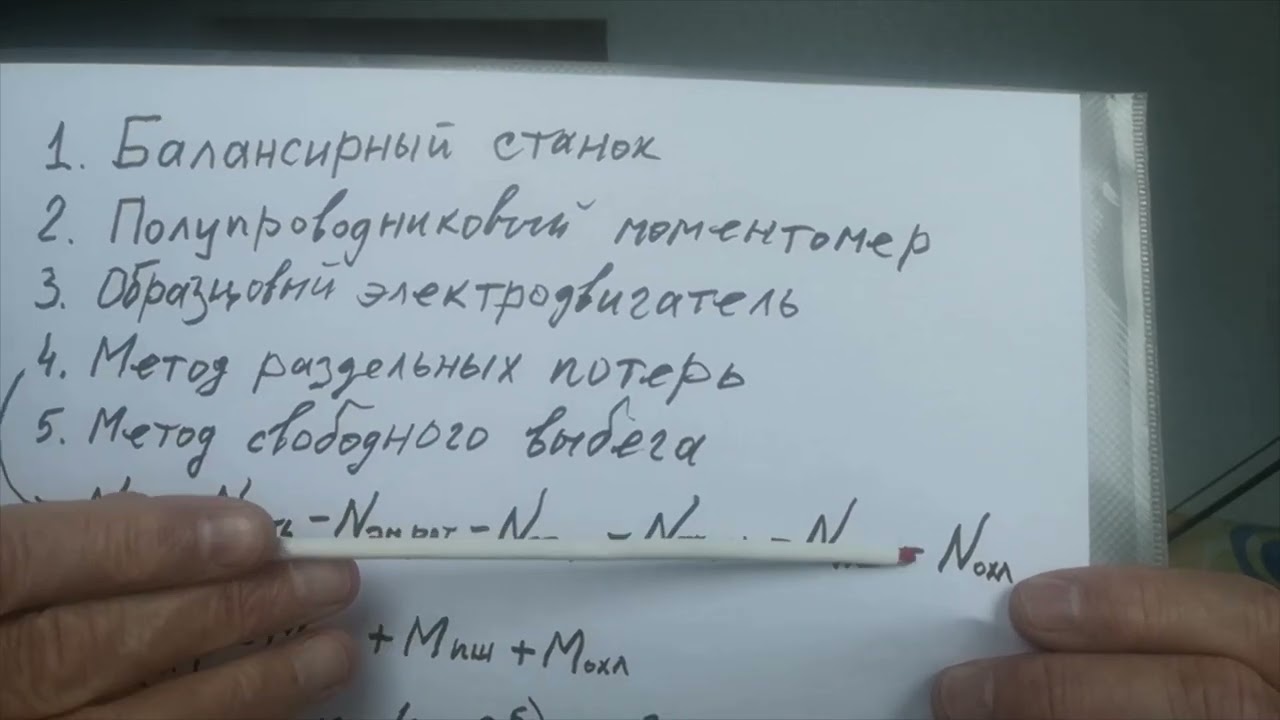 1. Балансирный станок
2. Полупроводниковый моментомер
3. Образцовый электродвигатель
4. Метод раздельных потерь
5. Метод свободного выбега
- N - N - N - N - Nохл
+ Mпш + Mохл